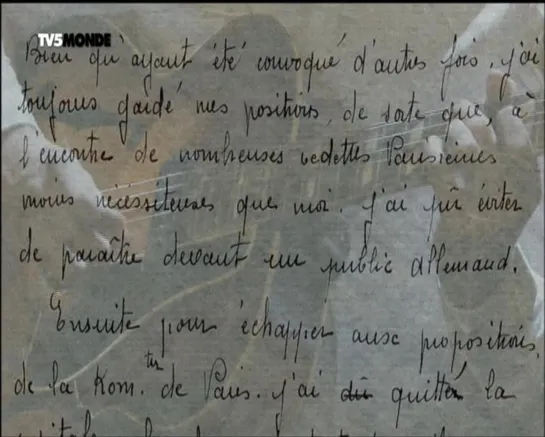 TV5MONDE
Bien qu'ayant été convoqué d'autres fois, j'ai
toujours gardé mes positions, de sorte que, à
l'encontre de nombreuses vedettes Parisiennes
moins nécessiteuses que moi. j'ai pû éviter
de paraître devant un public allemand.
Ensuite pour échapper aux propositions
de la Kom.tur de Paris. j'ai dû quitté la